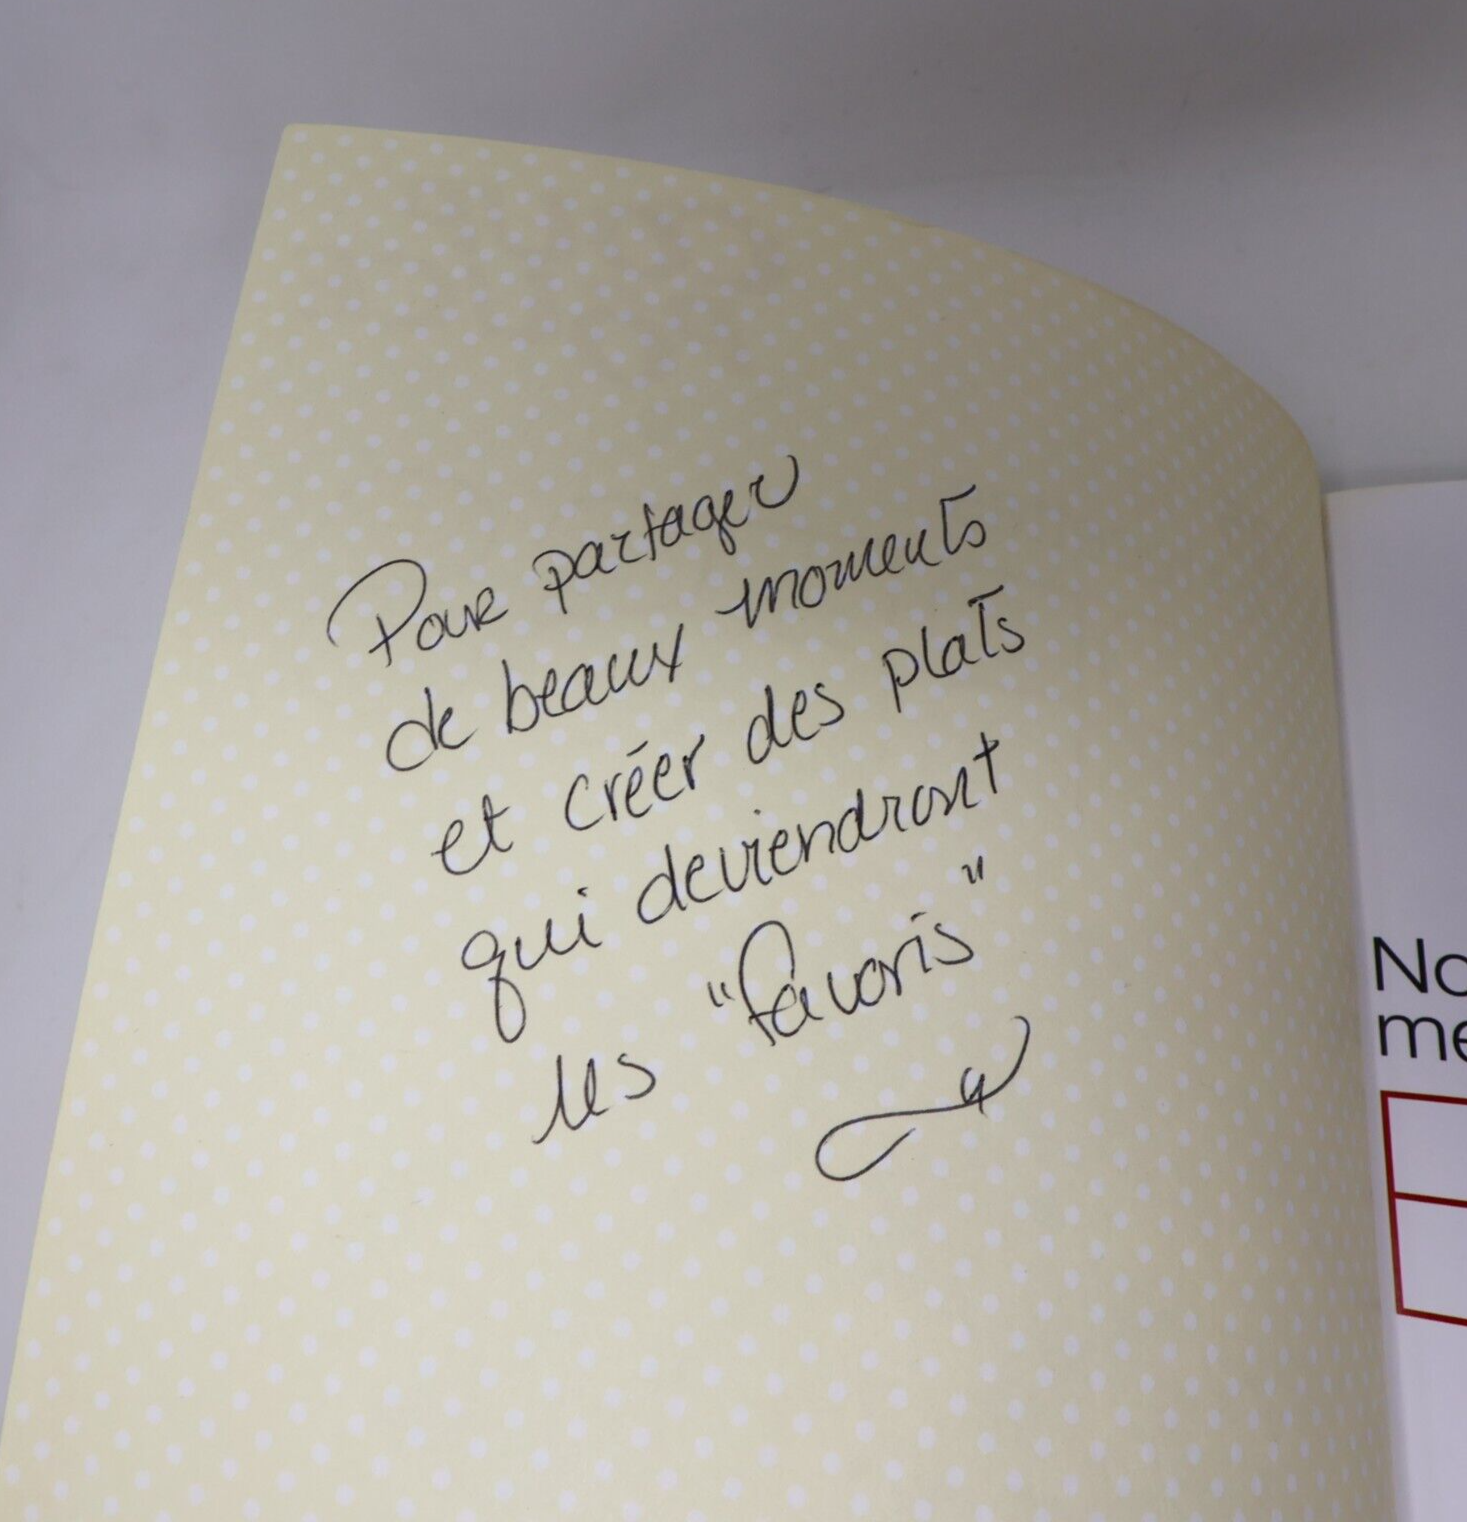 Pour partager
de beaux moments
et créer des plats
qui deviendront
les "favoris"